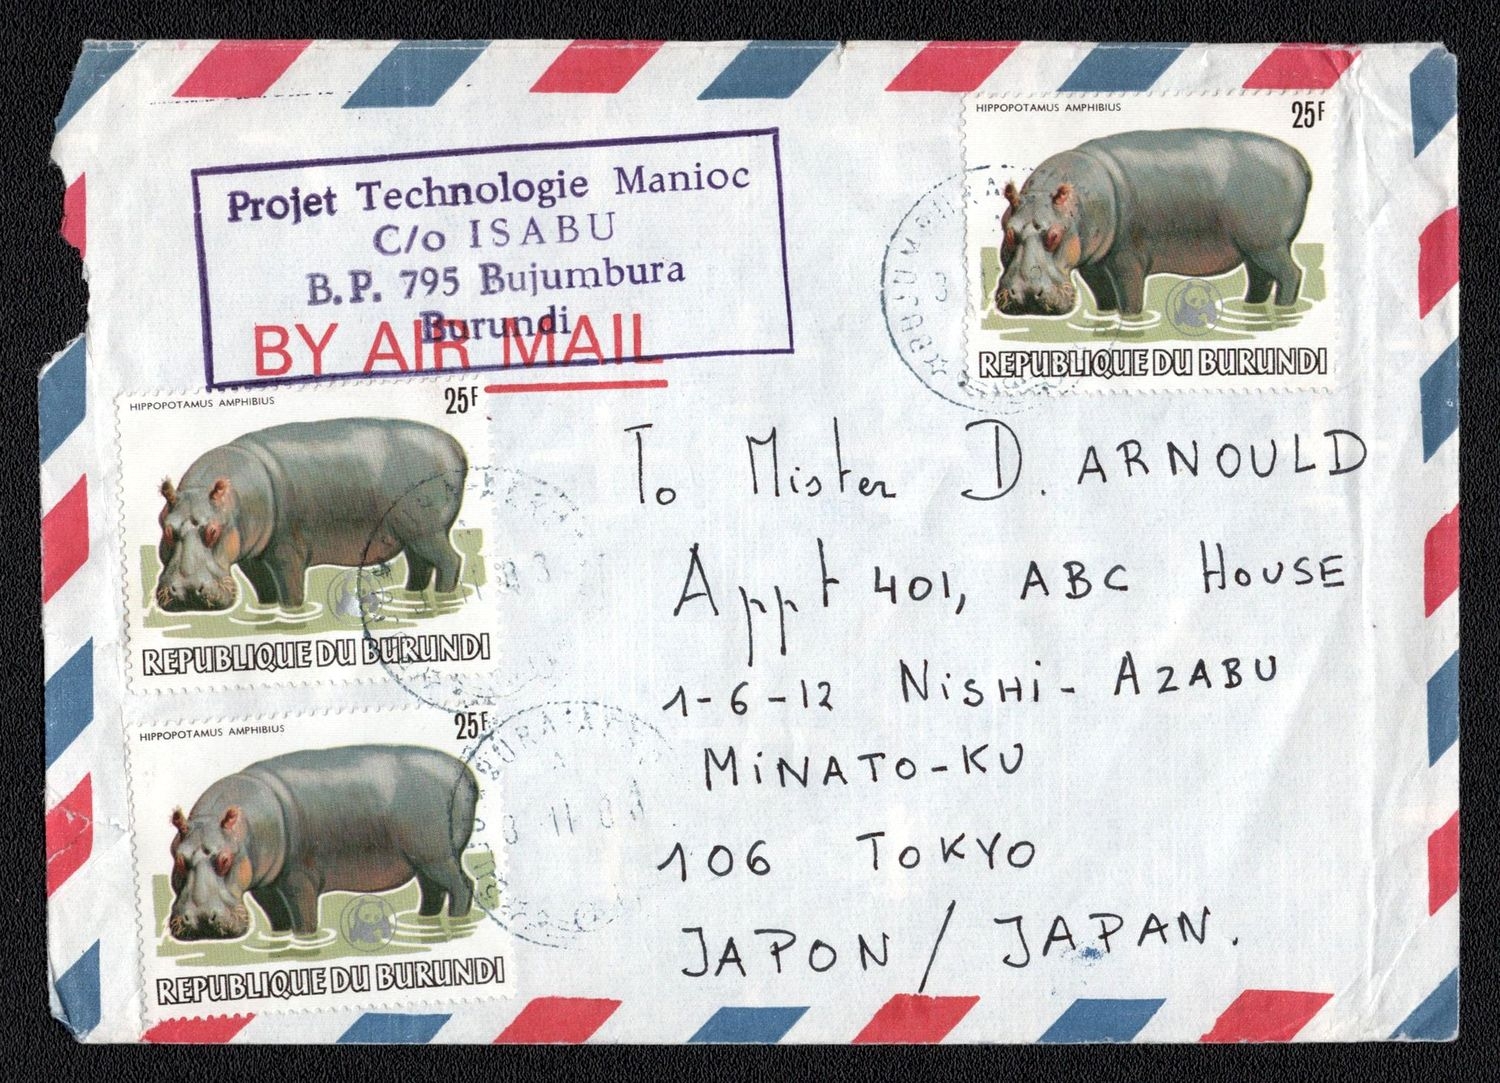 HIPPOPOTAMUS AMPHIBIUS 25F
REPUBLIQUE DU BURUNDI
Projet Technologie Manioc
C/o ISABU
B.P. 795 Bujumbura
Burundi
BY AIR MAIL
HIPPOPOTAMUS AMPHIBIUS 25F
REPUBLIQUE DU BURUNDI
HIPPOPOTAMUS AMPHIBIUS 25F
REPUBLIQUE DU BURUNDI
To Mister D. ARNOULD
Appt 401, ABC HOUSE
1-6-12 NiSHi-AZABU
MiNATO-KU
106 TOKYO
JAPON / JAPAN.